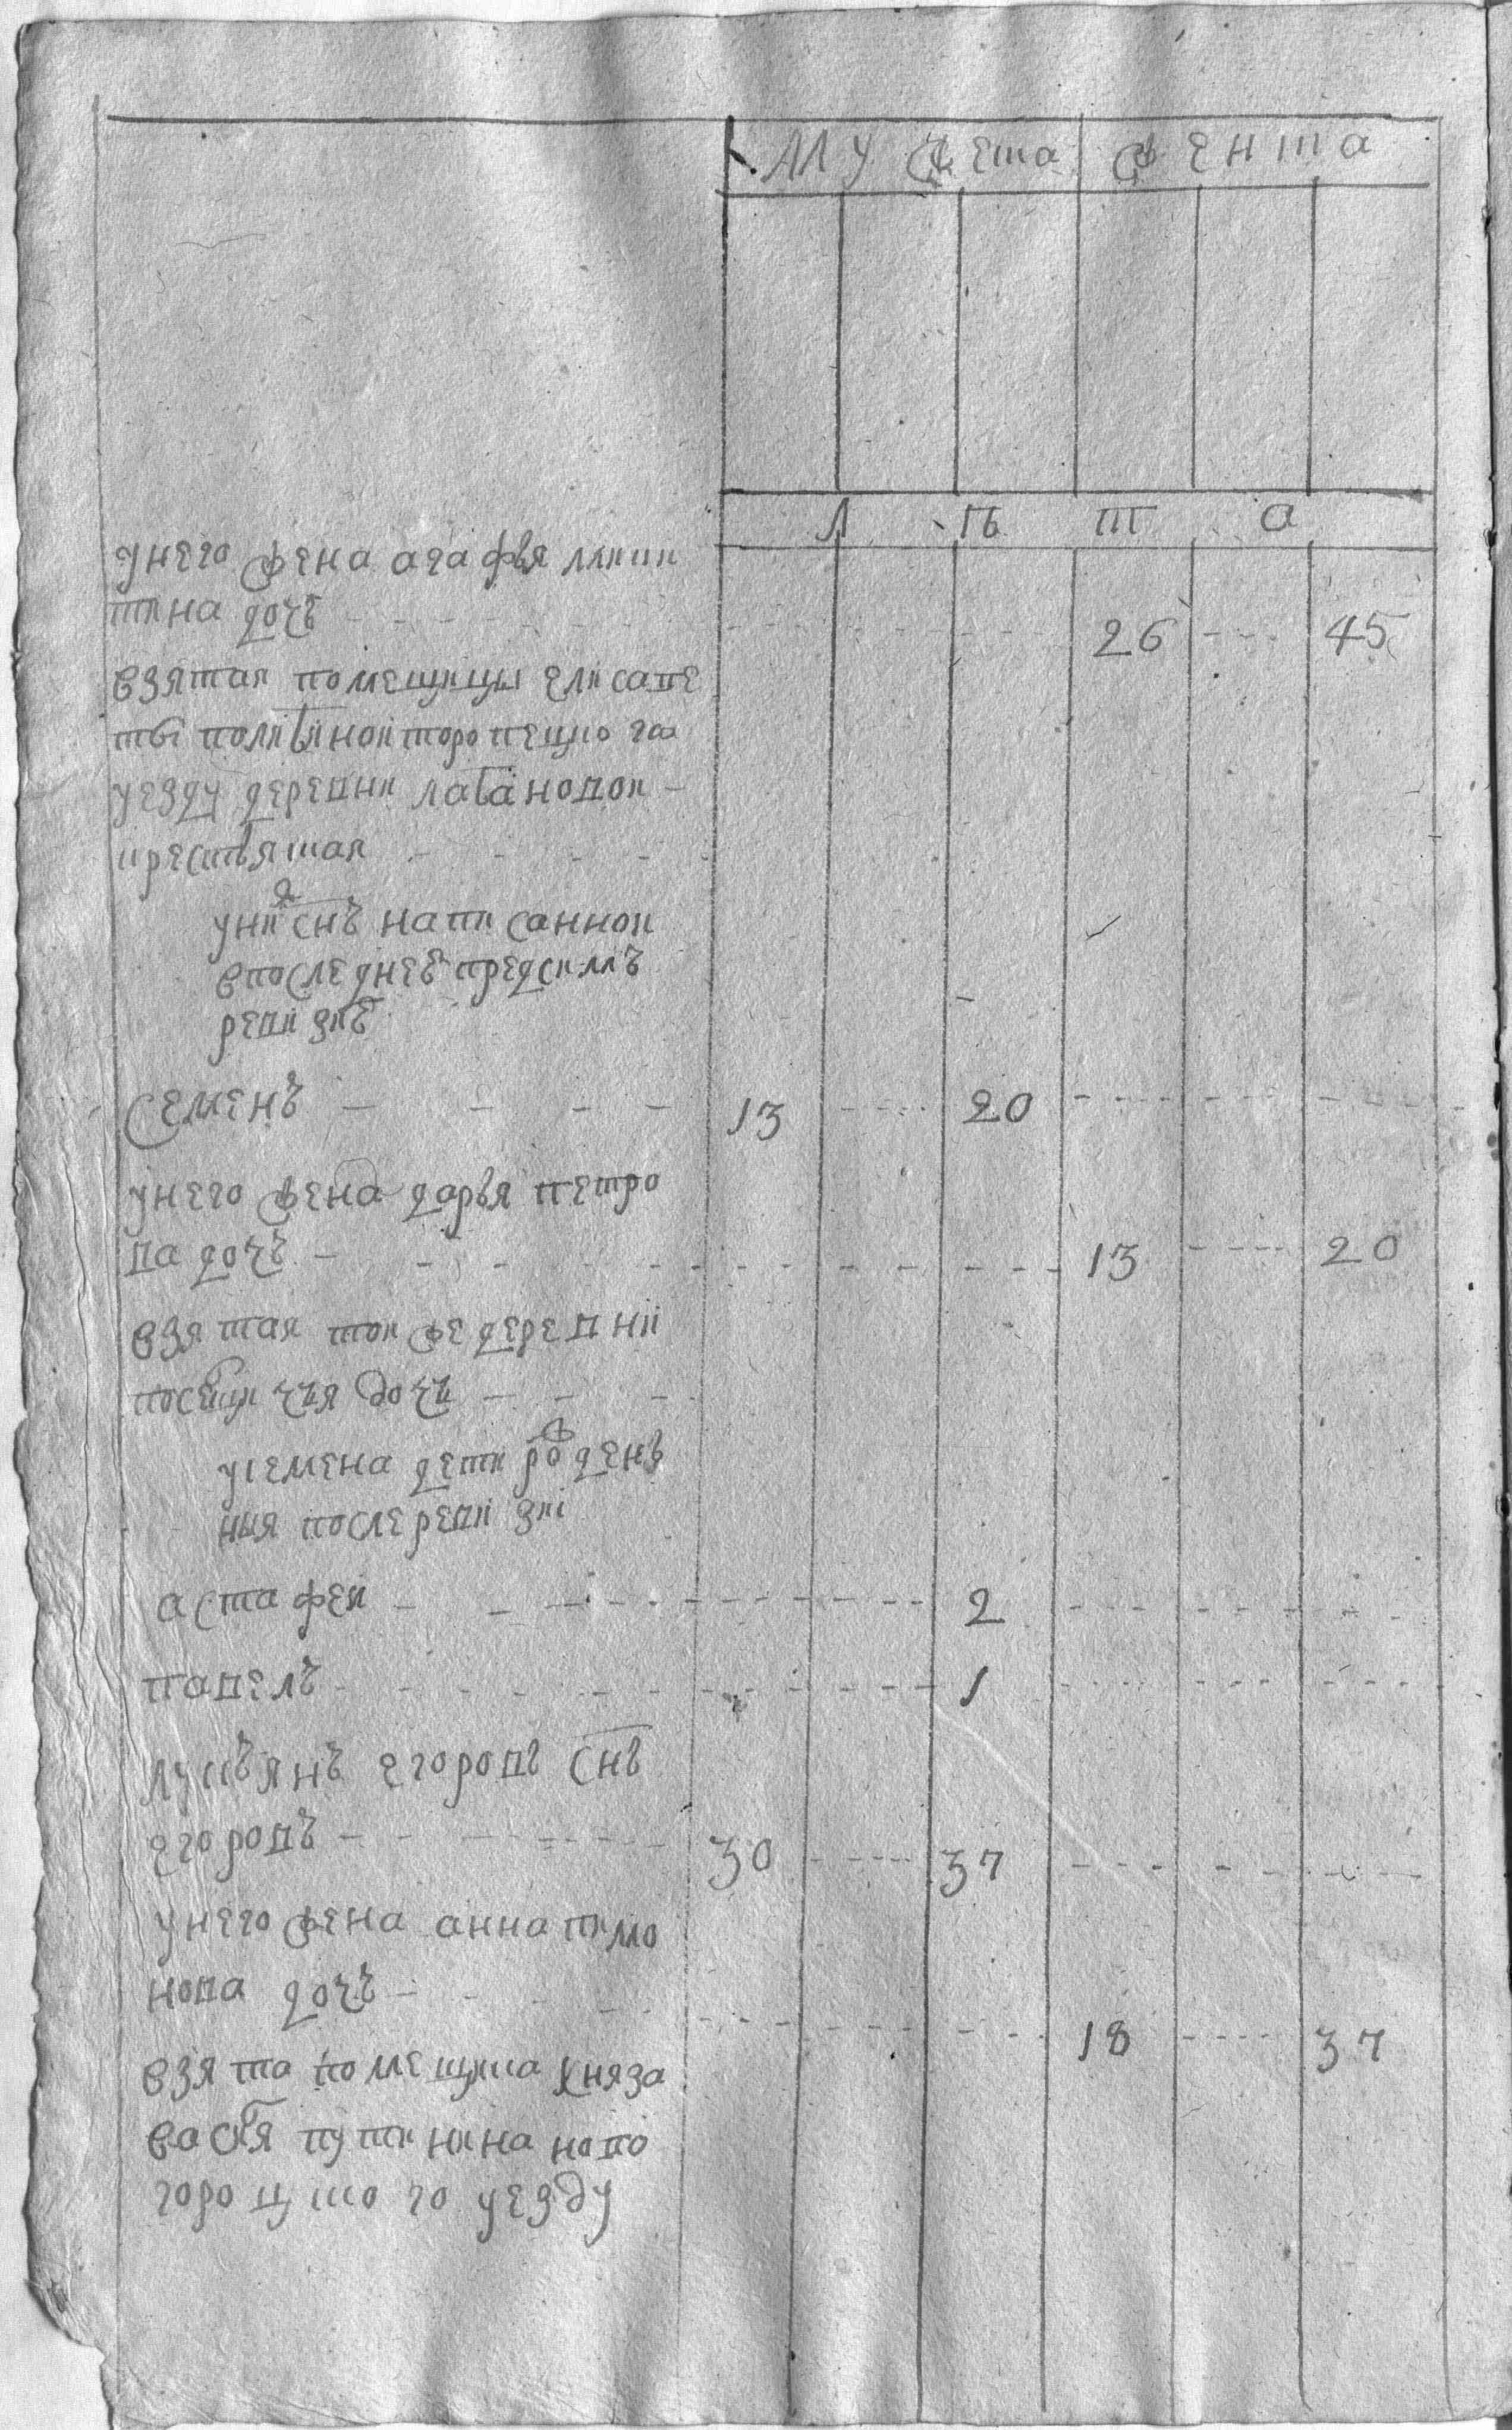 мужеска женска
л ѣ т а
унего жена агафья мики
тина дочь - - - 26 - - - 45
взятая помещицы елисаве
ты полибиной торопецкого
уезду деревни лабановой
крестьяская
уних снъ написанной
впоследней предсимъ
ревизиѣ
семенъ - - - 13 - - - 20 - - -
унего жена дарья петро
ва дочь - - - 13 - - - 20
взятая тойже деревни
посещичья дочь - - -
усемена дети рожденъ
ныя после ревизиі
астафей - - - 2 - - -
павелъ - - - 1 - - -
лукьянъ егоровъ снъ
егоровъ - - - 30 - - - 37 - - -
унего жена анна тимо
нова дочь - - - 18 - - - 37
взята помещика князя
василья путятина ново
городцкого уезду